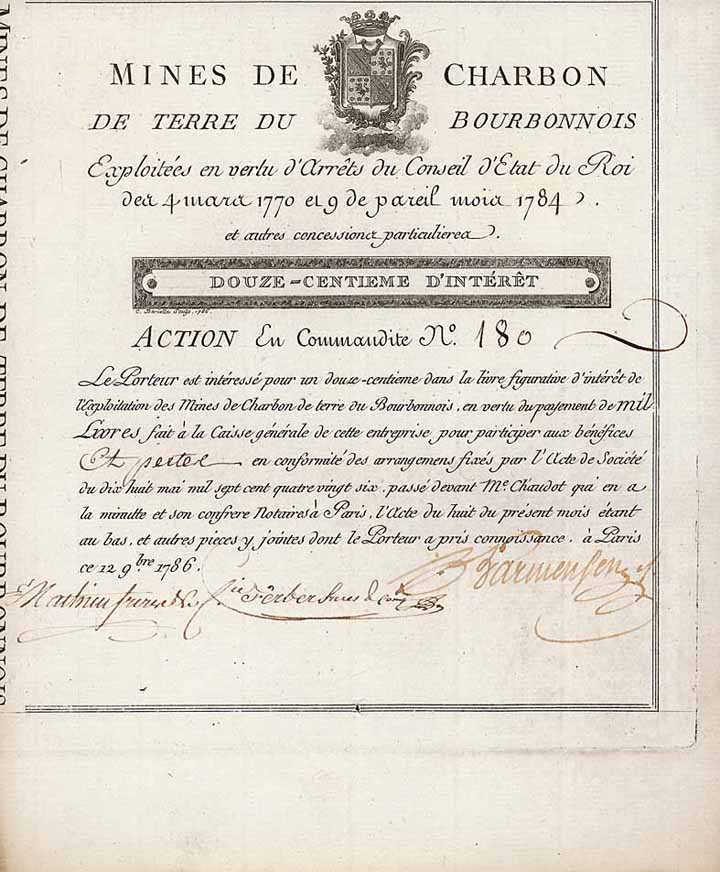 MINES DE CHARBON
DE TERRE DU BOURBONNOIS
Exploitées en vertu d'Arrêts du Conseil d'Etat du Roi
des 4 mars 1770 et 9 de pareil mois 1784.
et autres concessions particulieres.
DOUZE-CENTIEME D'INTÉRÊT
Sculp. 1786.
ACTION En Commandite N°. 180
Le Porteur est intéressé pour un douze-centieme dans la livre figurative d'intérêt de
l'Exploitation des Mines de Charbon de terre du Bourbonnois, en vertu du payement de mil
Livres fait à la Caisse générale de cette entreprise pour participer aux bénéfices
Et pertes en conformité des arrangemens fixés par l'Acte de Société
du dix huit mai mil sept cent quatre vingt six, passé devant Me. Chaudot qui en a
la minutte et son confrere Notaires à Paris, l'Acte du huit du présent mois étant
au bas, et autres pieces y jointes dont le Porteur a pris connoissance. à Paris
ce 12 9bre 1786.
MINES DE CHARBON DE TERRE DU BOURBONNOIS